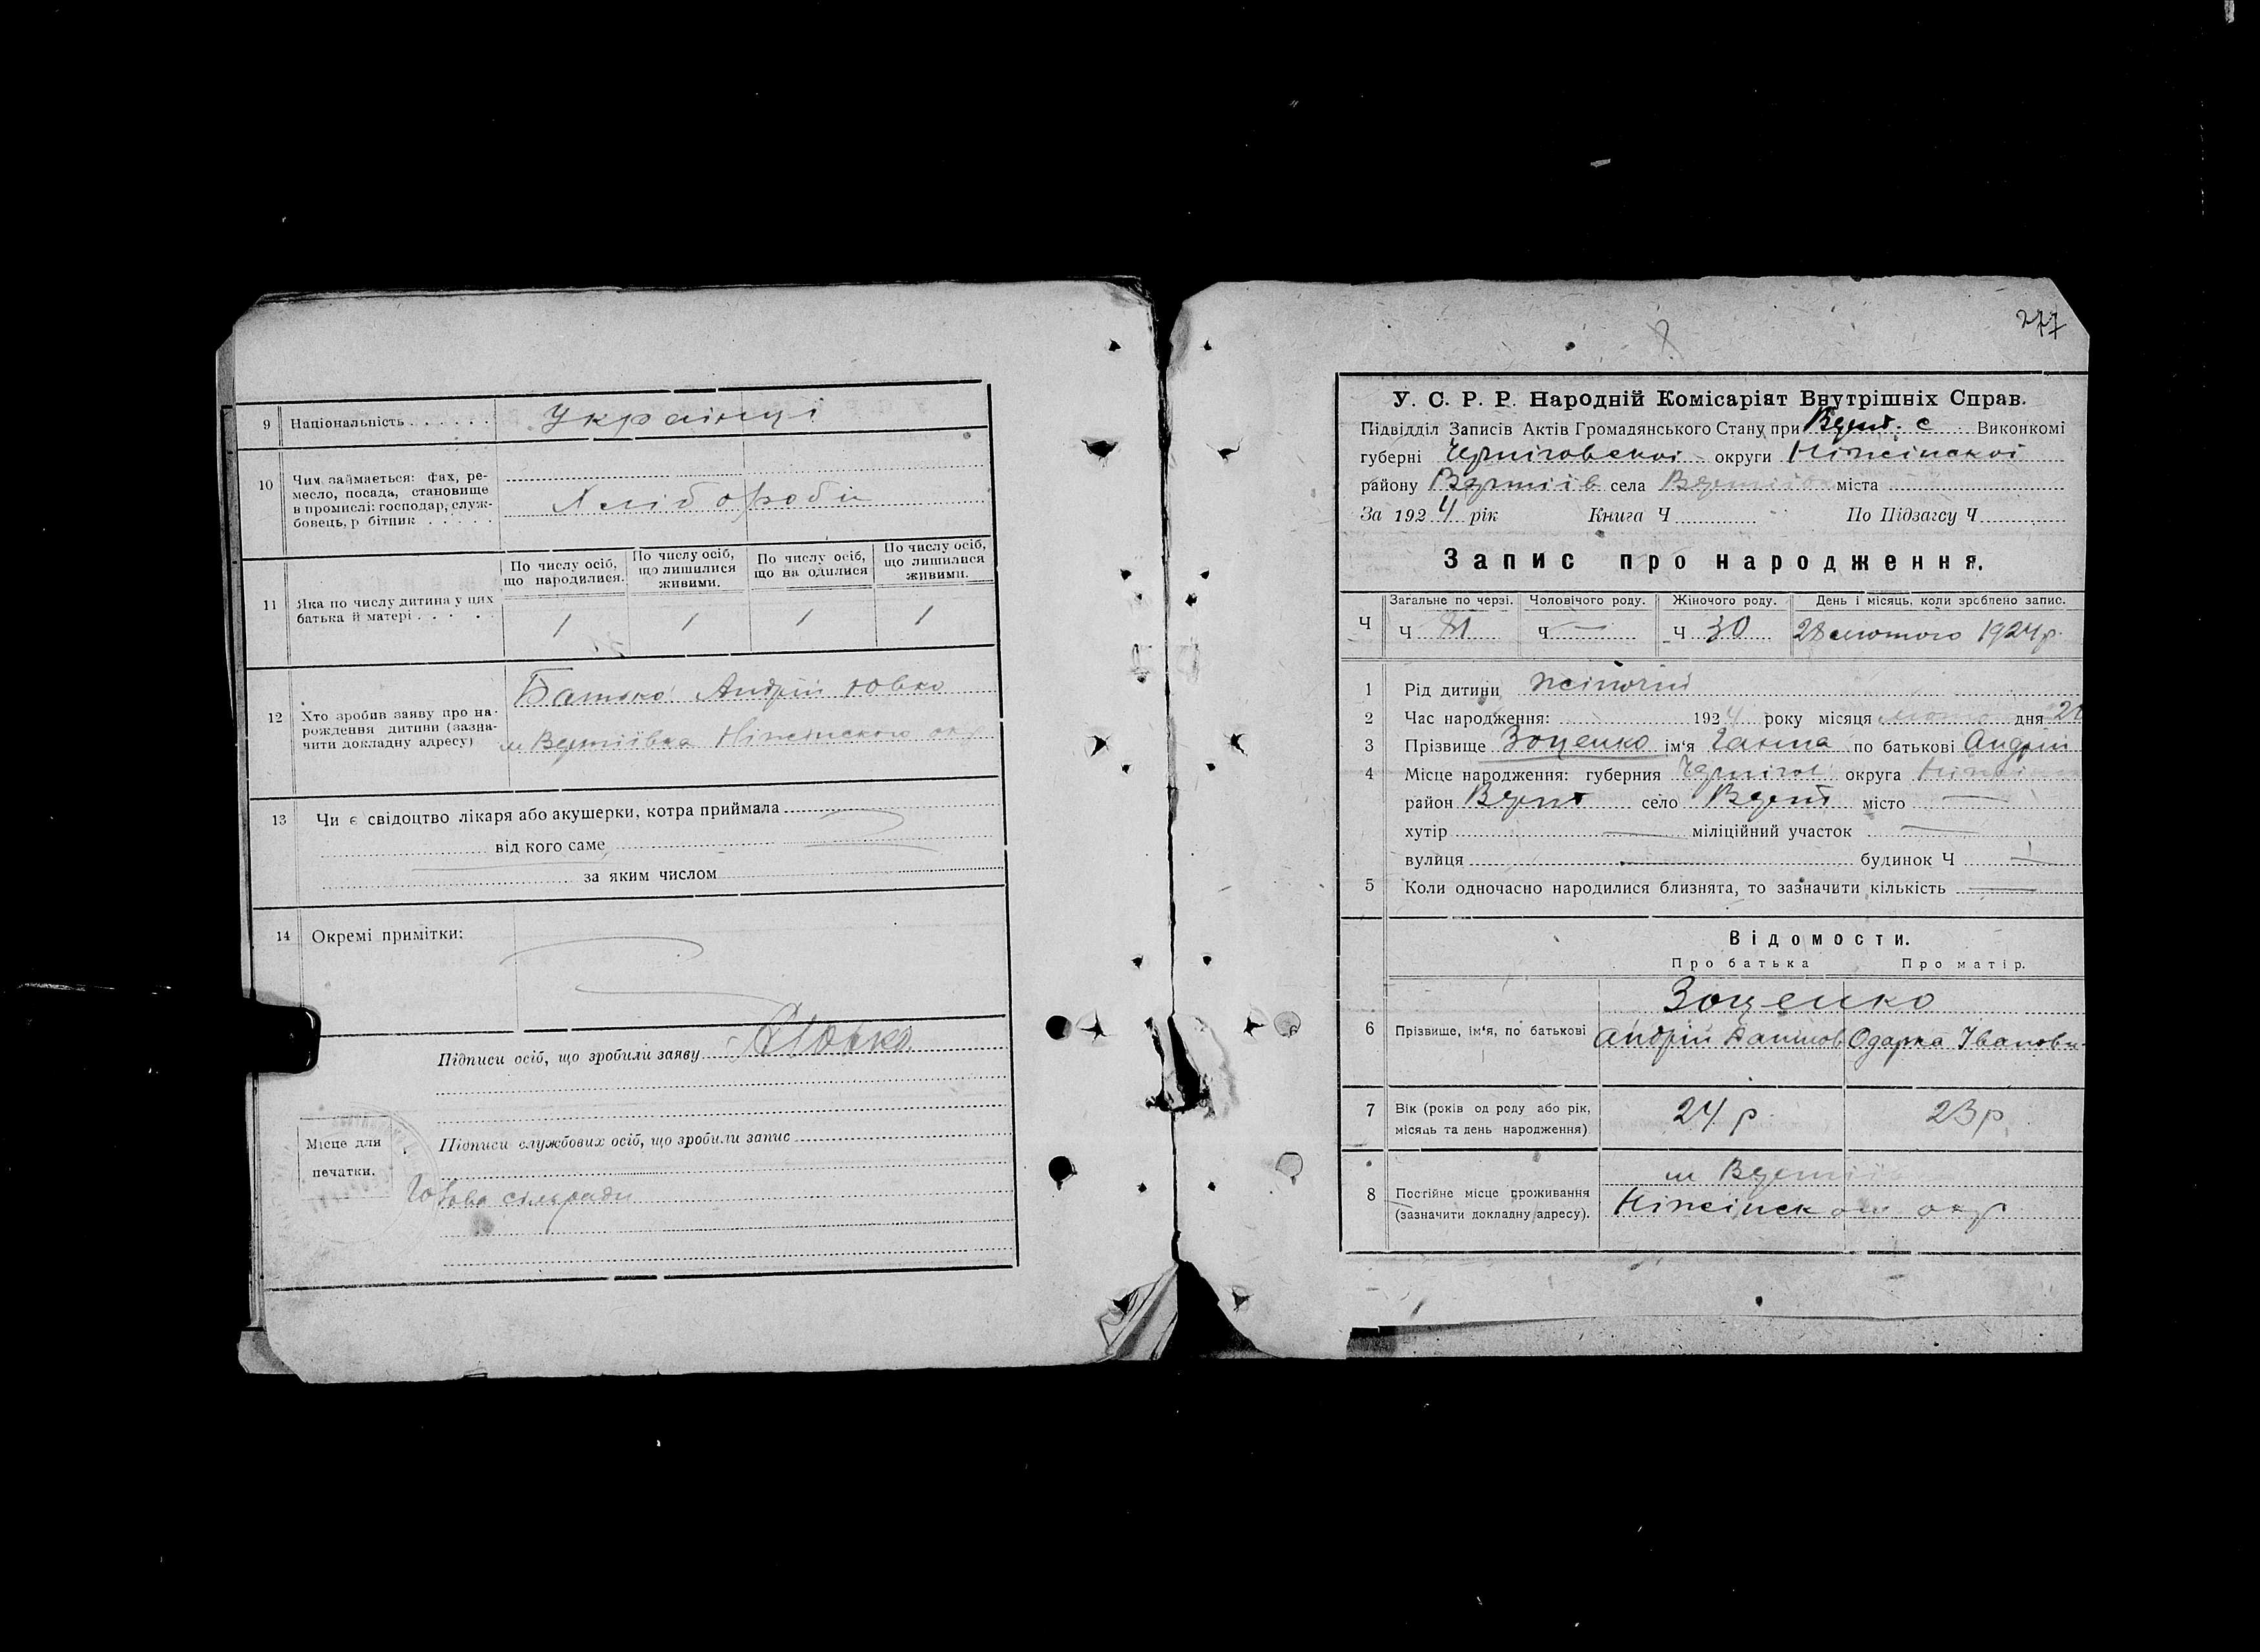 9 Національність . . . . . . Українці
10 Чим займається: фах, ре-
месло, посада, становище
в промислі: господар, служ-
бовець, р бітник . . . . . Хлібороби
По числу осіб, що народилися. По числу осіб, що лишилися живими. По числу осіб, що на одилися По числу осіб, що лишилися живими.
11 Яка по числу дитина у цих
батька й матері . . . . . 1 1 1 1
12 Хто зробив заяву про на-
рождення дитини (зазна-
чити докладну адресу)
Батько Андрій Ювко
м Вертіївка Ніжінского окр
13 Чи є свідоцтво лікаря або акушерки, котра приймала
від кого саме
за яким числом
14 Окремі примітки:
Підписи осіб, що зробили заяву АЮвко
Місце для
печатки.
Підписи службових осіб, що зробили запис
Голова сільради
277
У. С. Р. Р. Народній Комісаріят Внутрішніх Справ.
Підвідділ Записів Актів Громадянського Стану при Верт. с Виконкомі
губерні Черніговскоі округи Ніжінскоі
району Вертіїв села Вертіівка міста
За 1924 рік Книга Ч По Підзагсу Ч
Запис про народження.
Загальне по черзі. Чоловічого роду. Жіночого роду. День і місяць, коли зроблено запис.
Ч Ч 81 Ч — Ч 30 28 лютого 1924 р.
1 Рід дитини жіночій
2 Час народження: 1924 року місяця дня
3 Прізвище Зоценко ім'я Ганна по батькові Андрій
4 Місце народження: губерния Чернігов округа Ніжін
район Верт село Верт місто —
хутір — міліційний участок —
вулиця — будинок Ч —
5 Коли одночасно народилися близнята, то зазначити кількість —
Відомости.
Про батька Про матір.
Зоценко
6 Прізвище, ім'я, по батькові Андрій Одарка Іванови
7 Вік (років од роду або рік,
місяць та день народження) 24 р. 23 р.
8 Постійне місце проживання
(зазначити докладну адресу).
м Вертіів
Ніжінского окр